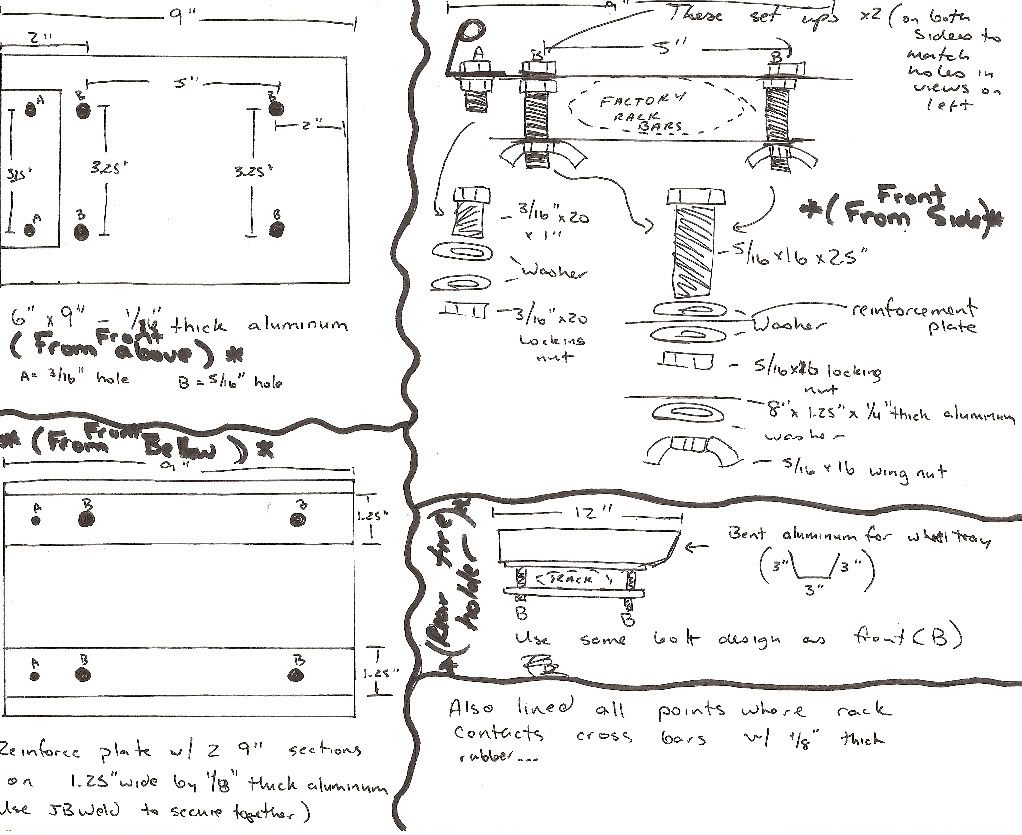 9"
2"
5"
A
B
B
2"
3.25"
3.25"
A
B
B
6" x 9" - thick aluminum
(From Front above) *
A= 3/16" hole B = 5/16" hole
* (From Front Below) *
9"
A
B
B
1.25"
A
B
B
1.25"
Reinforce plate w/ 2 9" sections
on 1.25" wide by 1/8" thick aluminum
Use JB Weld to secure together)
9"
These set ups x2 (on both
sides to
match
holes in
views on
left
5"
A
B
B
FACTORY
RACK
BARS
*(Front
From Side)*
3/16" x 20
x 1"
Washer
3/16" x 20
Locking
nut
5/16 x 16 x 2.5"
reinforcement
plate
Washer
5/16 x 16 locking
nut
8" x 1.25" x 1/4" thick aluminum
washer
5/16 x 16 wing nut
*(Rear tire
holder)*
12"
RACK
B
B
Bent aluminum for wheel tray
(3" 3")
3"
Use same bolt design as front (B)
Also lined all points where rack
contacts cross bars w/ 1/8" thick
rubber...